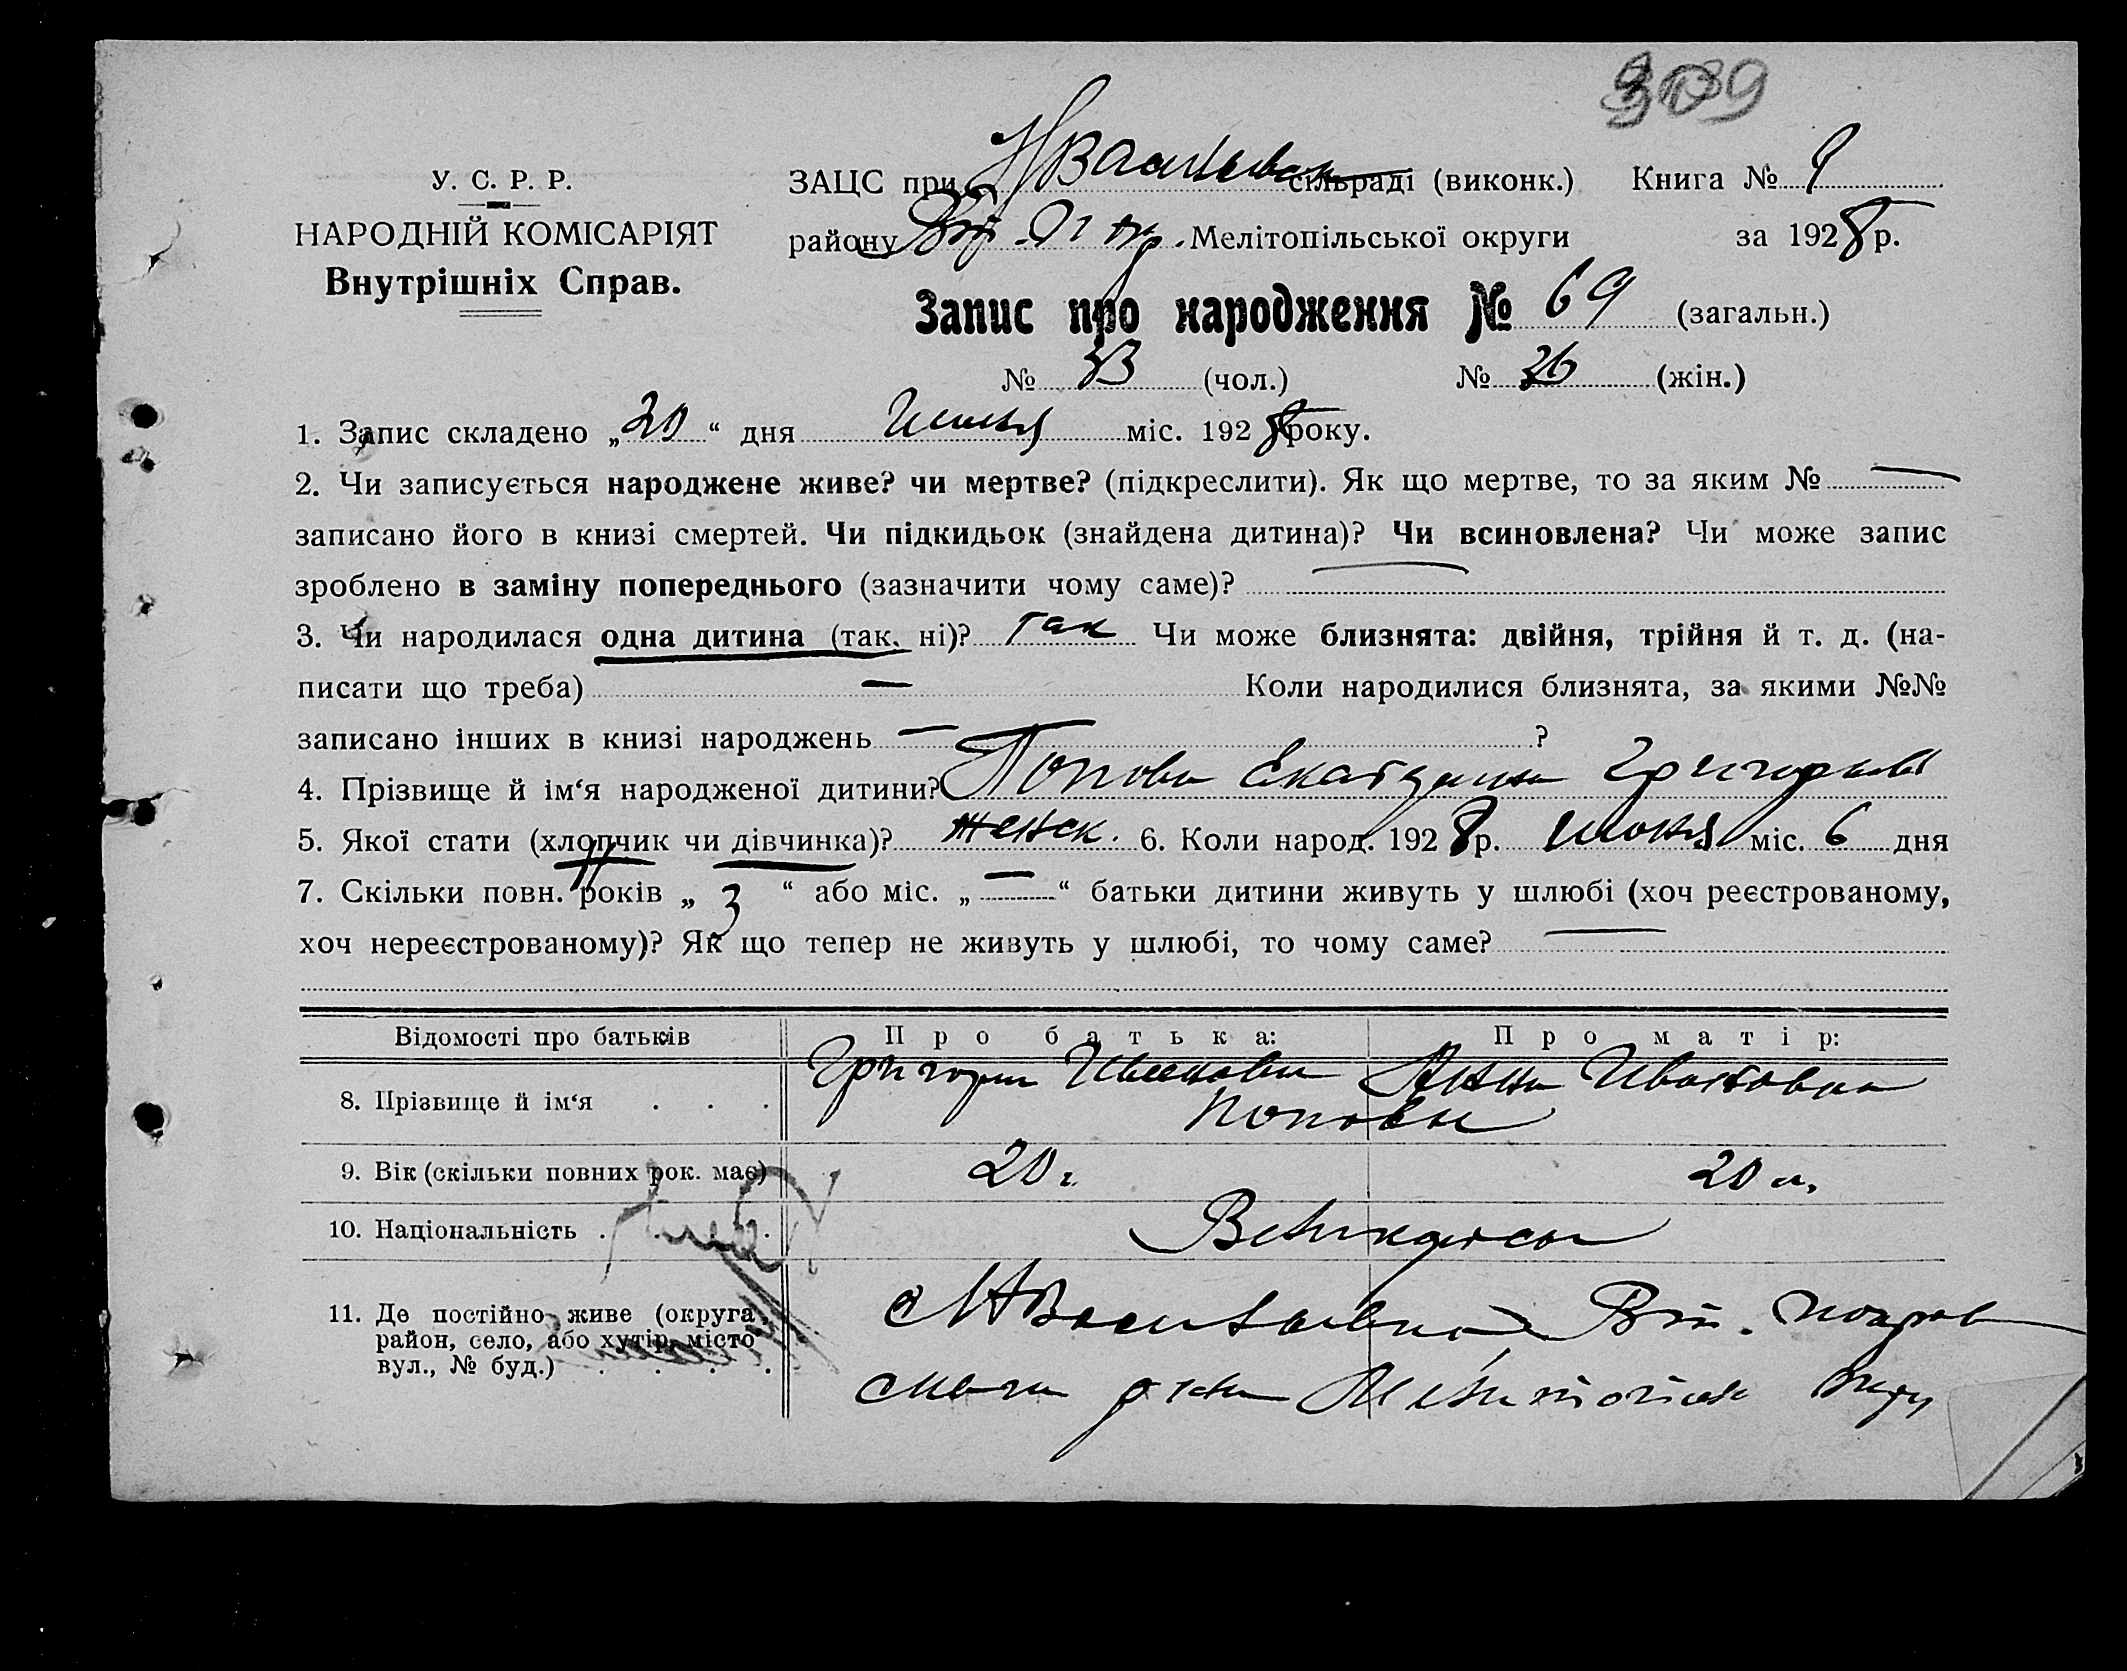 309
У. С. Р. Р.
НАРОДНІЙ КОМІСАРІЯТ
Внутрішніх Справ.
ЗАЦС при сільраді (виконк.) Книга №
району Мелітопільської округи за 1928 р.
Запис про народження № 69 (загальн.)
№ 33 (чол.) № 36 (жін.)
1. Запис складено „20“ дня Июня міс. 1928 року.
2. Чи записується народжене живе? чи мертве? (підкреслити). Як що мертве, то за яким № —
записано його в книзі смертей. Чи підкидьок (знайдена дитина)? Чи всиновлена? Чи може запис
зроблено в заміну попереднього (зазначити чому саме)? —
3. Чи народилася одна дитина (так, ні)? так Чи може близнята: двійня, трійня й т. д. (на-
писати що треба) — Коли народилися близнята, за якими №№
записано інших в книзі народжень — ?
4. Прізвище й ім‘я народженої дитини? Попова Екатерина
5. Якої стати (хлопчик чи дівчинка)? женск. 6. Коли народ. 1928 р. июня міс. 6 дня
7. Скільки повн. років „ 3 “ або міс. „ — “ батьки дитини живуть у шлюбі (хоч реєстрованому,
хоч нереєстрованому)? Як що тепер не живуть у шлюбі, то чому саме? —
Відомості про батьків Про батька: Про матір:
8. Прізвище й ім‘я . . . Григорий Анна Ивановна
Поповы
9. Вік (скільки повних рок. має) 20 г. 20 л.
10. Національність . . .
11. Де постійно живе (округа,
район, село, або хутір, місто
вул., № буд.) . . . .